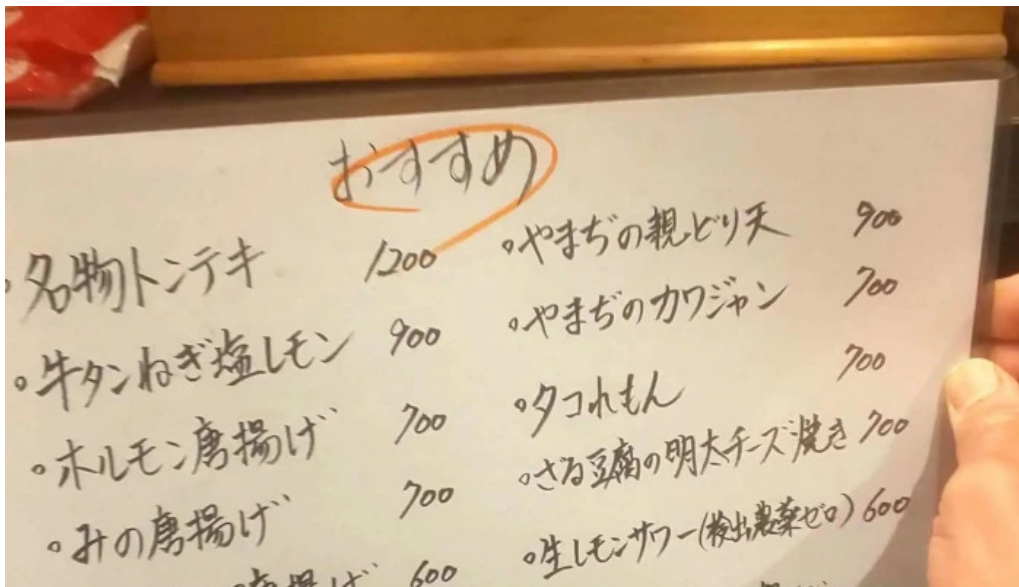 おすすめ
・名物トンテキ 1200
・牛タンねぎ塩レモン 900
・ホルモン唐揚げ 700
・みの唐揚げ 700
唐揚げ 600
・やまぢの親どり天 900
・やまぢのカワジャン 700
・タコれもん 700
・ざる豆腐の明太チーズ焼き 700
・生レモンサワー(検出農薬ゼロ) 600